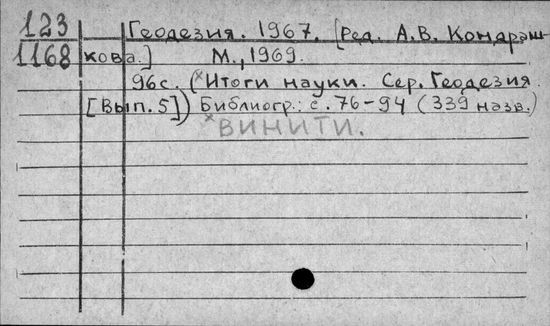 123
1168
Геодезия. 1967. [Ред. А.В. Кондраш-
кова.] М., 1969.
96с. (*Итоги науки. Сер. Геодезия.
[Вып. 5]) Библиогр.: с. 76-94 (339 назв.)
*ВИНИТИ.